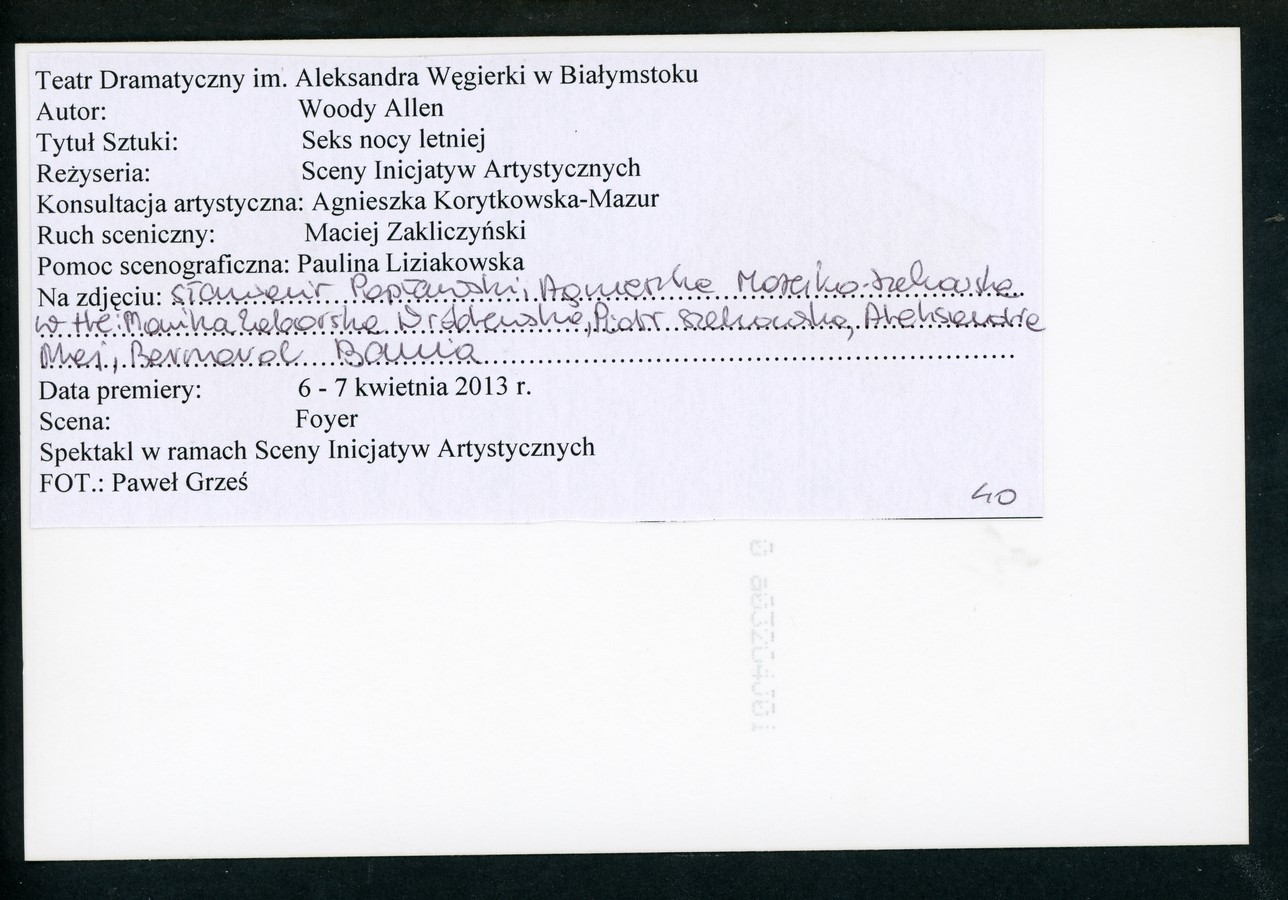 Teatr Dramatyczny im. Aleksandra Węgierki w Białymstoku
Autor: Woody Allen
Tytuł Sztuki: Seks nocy letniej
Reżyseria: Sceny Inicjatyw Artystycznych
Konsultacja artystyczna: Agnieszka Korytkowska-Mazur
Ruch sceniczny: Maciej Zakliczyński
Pomoc scenograficzna: Paulina Liziakowska
Na zdjęciu: Sławomir Popławski, Agnieszka Możejko-Szekowska
w tle: Monika Zaborska Wróblewska, Piotr Szekowski, Aleksandra
Maj, Bernard Bania
Data premiery: 6 - 7 kwietnia 2013 r.
Scena: Foyer
Spektakl w ramach Sceny Inicjatyw Artystycznych
FOT.: Paweł Grześ
40